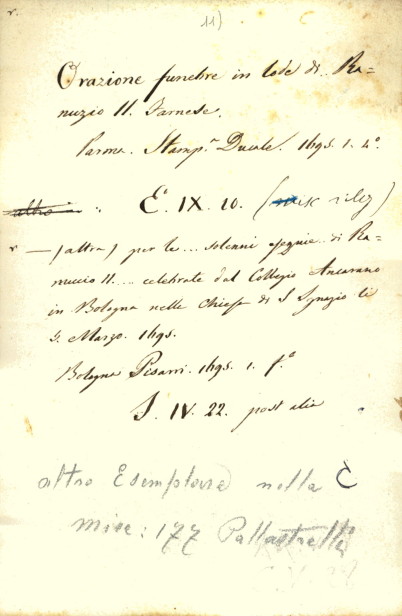 r.
11)
Orazione funebre in lode di Ra=
nuzio II. Farnese.
Parma. Stamp.ª Ducale. 1695. 1. 4º
E. IX. 10.
r — (altra) per le ... solenni esequie di Ra=
nuccio II.... celebrate dal Collegio Ancarano
in Bologna nella Chiesa di S Ignazio li
5. Marzo. 1695.
Bologna Pisarri. 1695. 1. fº
J. IV. 22. post alia
altro Esemplare nella C
misc: 177 Pallastrelli